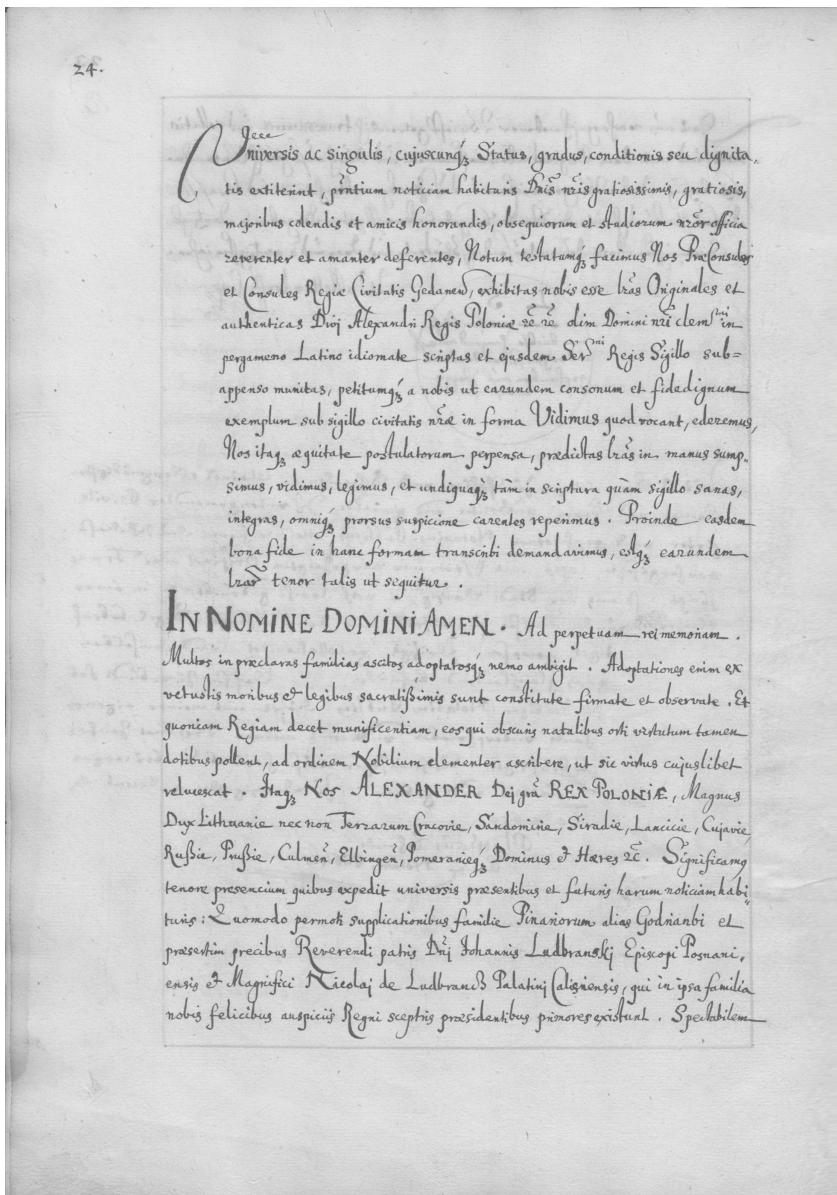 24.
Universis ac singulis, cujuscunq́ꝫ Status, gradus, conditionis seu dignita,
tis extiterint, prñtium noticiam habituris Dnĩs nr̃is gratiosissimis, gratiosis,
majoribus colendis et amicis honorandis, obsequiorum et studiorum nr̃or officia
reverenter et amanter deferentes, Notum testatumq́ꝫ facimus Nos PræConsules
et Consules Regiæ Civitatis Gedanen̄, exhibitas nobis esse lr̃as Originales et
authenticas Divj Alexandri Regis Poloniæ ꝛc̃ ꝛc̃ olim Domini nr̃i clem̃ᵐⁱ in
pergameno Latino idiomate scriptas et ejusdem Serᵐⁱ Regis Sigillo sub=
appenso munitas, petitumq́ꝫ a nobis ut earundem consonum et fidedignum
exemplum sub sigillo civitatis nr̃æ in forma Vidimus quod vocant, ederemus,
Nos itaqꝫ æquitate postulatorum perpensa, prædictas lr̃as in manus sump,
simus, vidimus, legimus, et undiquaq́ꝫ tàm in scriptura quàm sigillo sanas,
integras, omniq́ꝫ prorsus suspicione carentes reperimus. Proinde easdem
bona fide in hanc formam transcribi demandavimus, estq́ꝫ earundem
lr̃ar̃ tenor talis ut sequitur.
IN NOMINE DOMINI AMEN. Ad perpetuam rei memoriam.
Multos in præclaras familias ascitos adoptatosq́ꝫ nemo ambigit. Adoptationes enim ex
vetustis moribus et legibus sacratissimis sunt constitute firmate et observate. Et
quoniam Regiam decet munificentiam, eos qui obscuris natalibus orti virtutum tamen
dotibus pollent, ad ordinem Nobilium clementer ascribere, ut sic virtus cujuslibet
relucescat. Itaqꝫ Nos ALEXANDER Dej grã REX POLONIÆ, Magnus
Dux Lithuanie nec non Terrarum Cracovie, Sandomirie, Siradie, Lancicie, Cujavie,
Russie, Prussie, Culmeñ, Elbingeñ, Pomeranieq́ꝫ Dominus et Hæres ꝛc̃. Significamꝯ
tenore presencium quibus expedit universis præsentibus et futuris harum noticiam habi,
turis: Quomodo permoti supplicationibus familie Pinariorum alias Godrianbi et
præsertim precibus Reverendi patris Dnj̃ Johannis Ludbranskj Episcopi Posnani,
ensis et Magnifici Nicolaj de Ludbrancz Palatinj Calisniensis, qui in ipsa familia
nobis felicibus auspiciis Regni sceptris præsidentibus primores existunt. Spectabilem